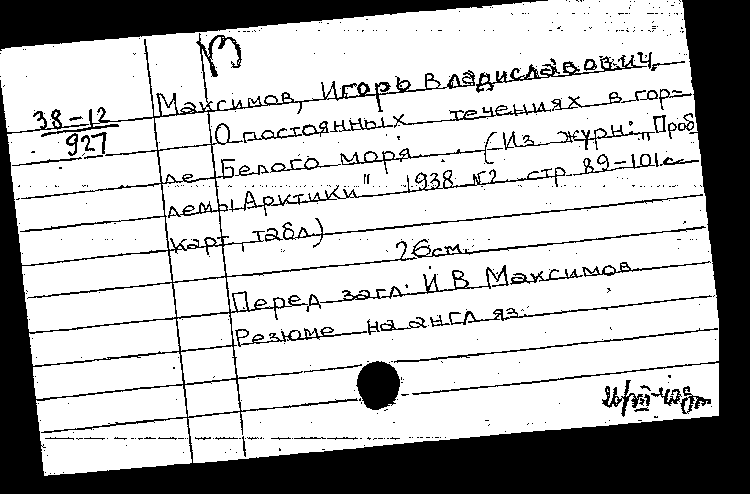 38-12
927
Максимов, Игорь Владиславович
О постоянных течениях в гор-
ле Белого моря. (Из журн: „Проб
лемы Арктики" 1938 №2 стр 89-101 с
карт, табл.)
26см.
Перед загл: И В Максимов
Резюме на англ яз.